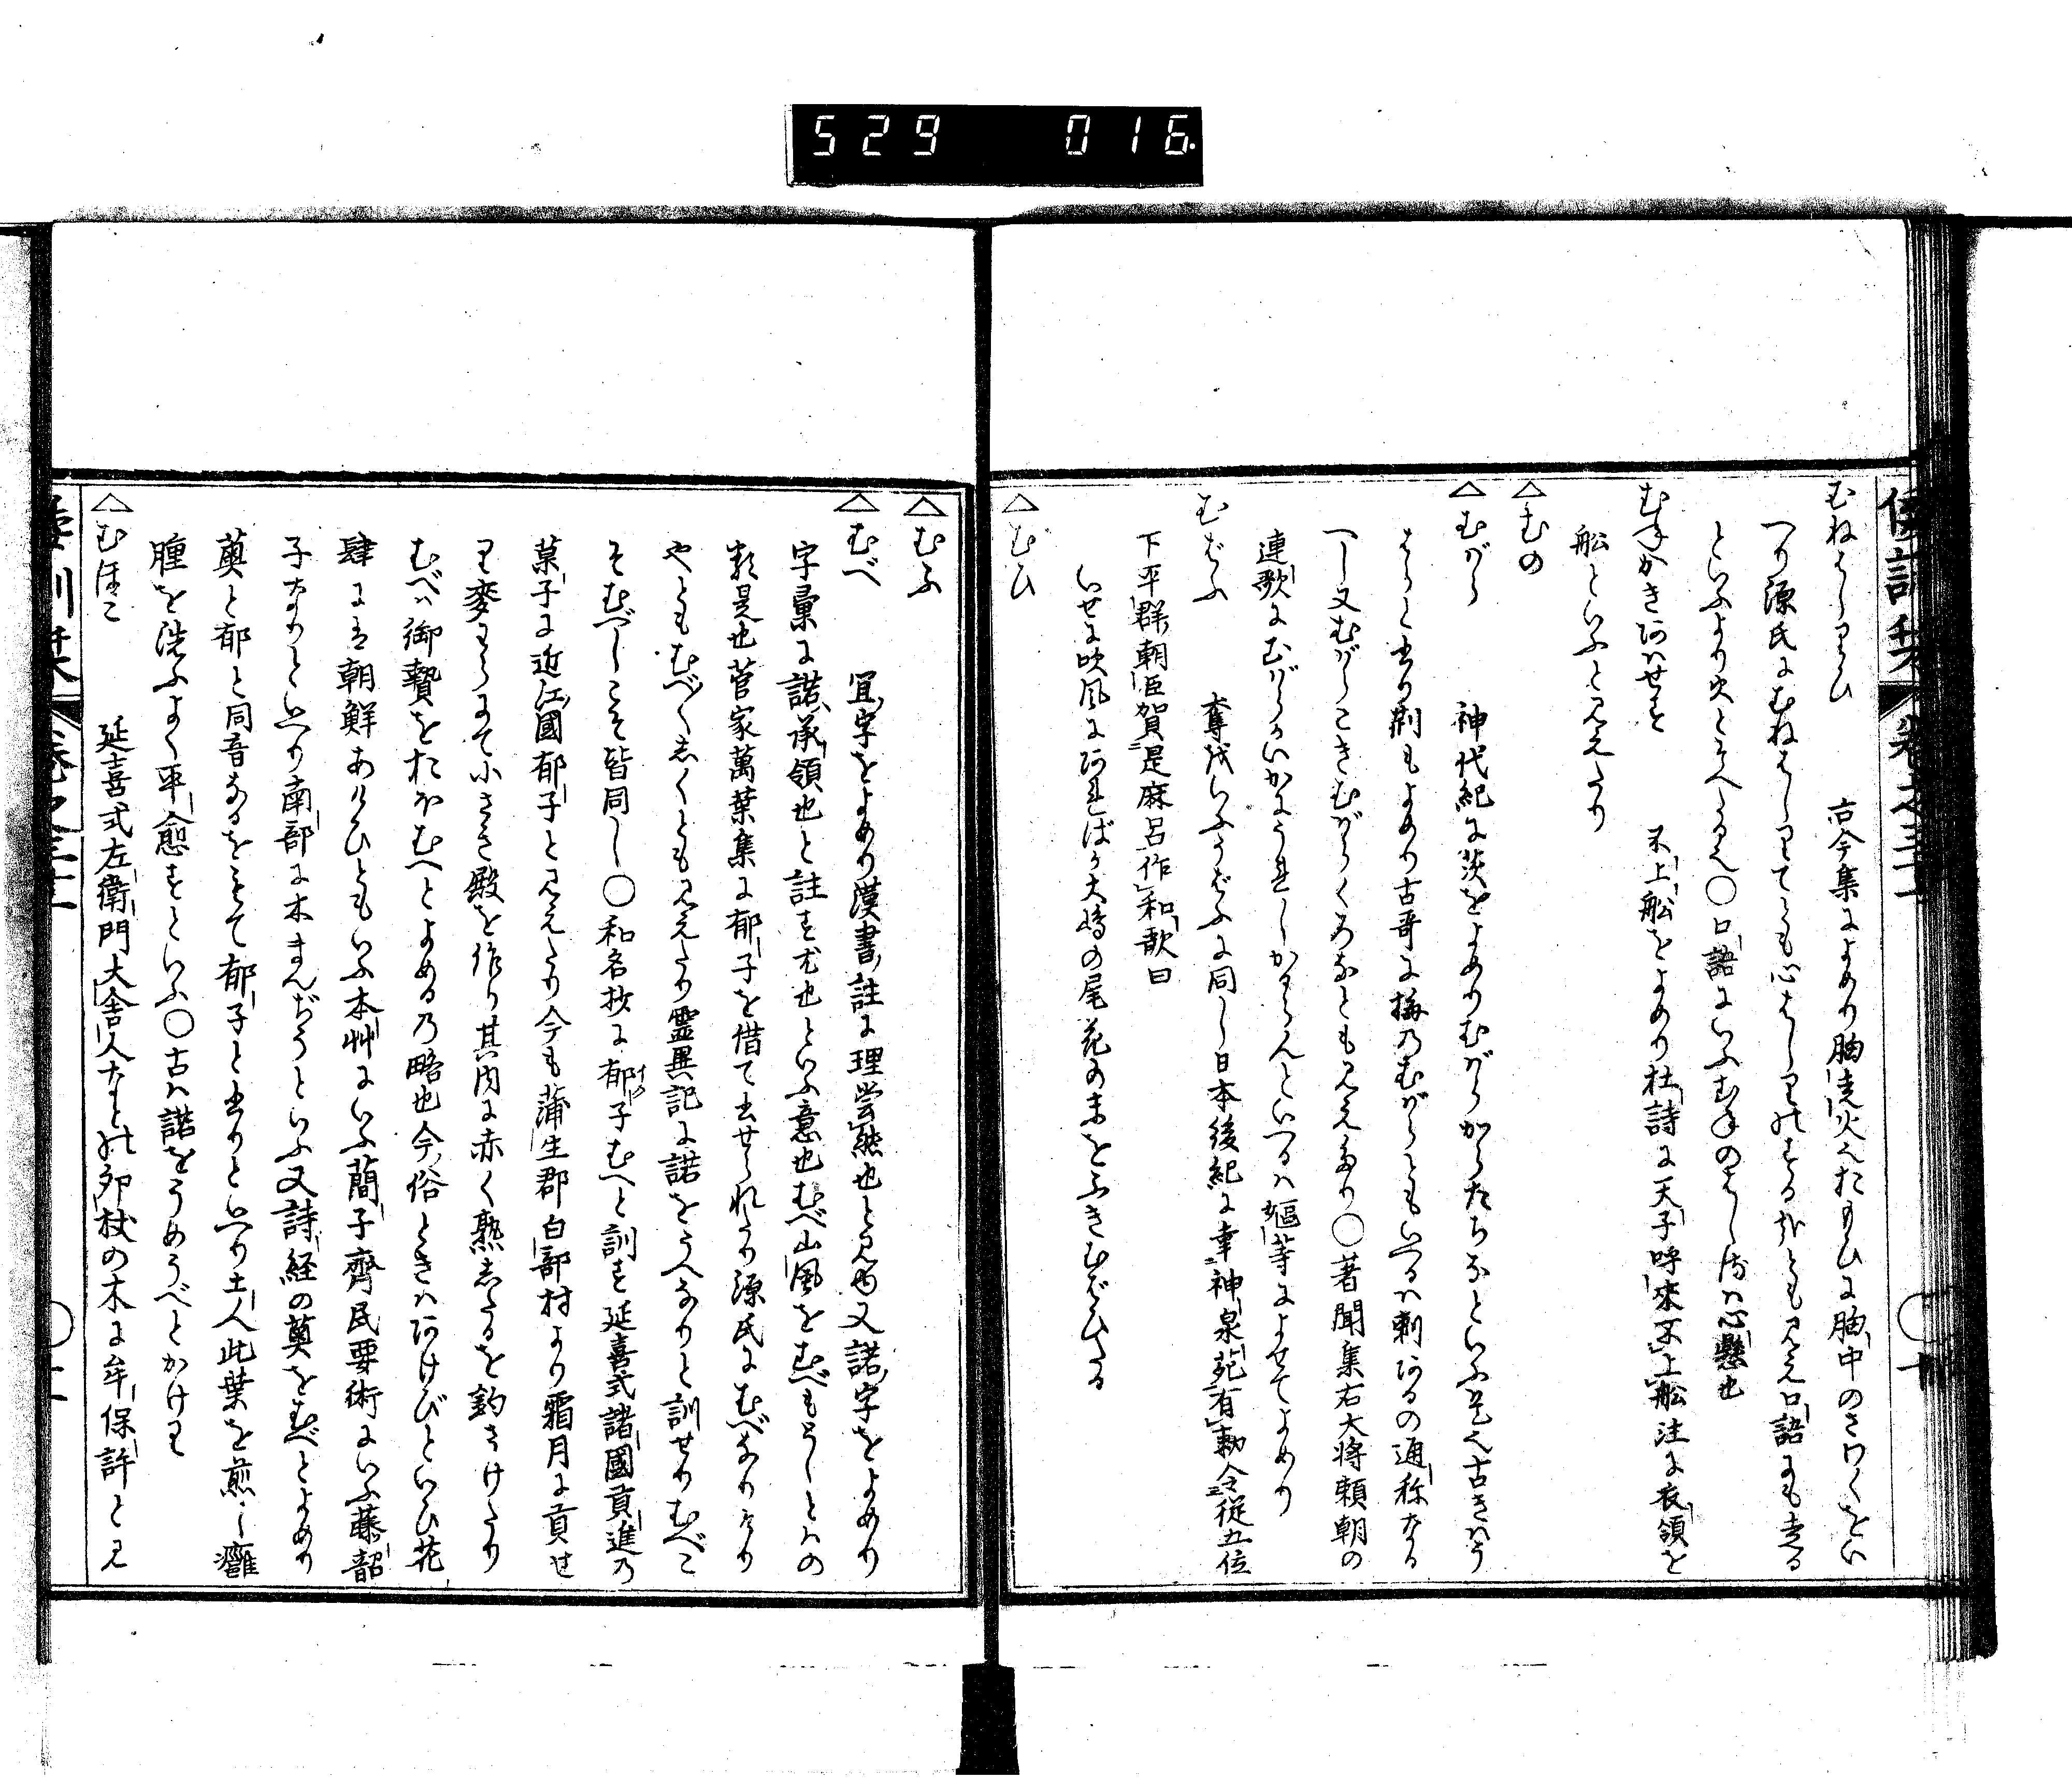 529 016
倭訓栞 巻之三十一 ○十
むねはしりひ 古今集によめり胸走火也おもひに胸中のさわくをい
へり源氏にむねはしりてとも心はしりのするなとも見え口語にも走る
といふより火とそへる也○口語にいふむねのはし はハ心懸也
むねかきあはせす 不上船をよめり杜詩に天子呼来不上船注に衣領を
船といふと見えたり
△むの
△むばら 神代紀に茨をよめりむばらからたちなといふ是也古きハう
はらと書り荊もよめり古哥に梅のむばらともいへるハ刺あるの通称なる
へし又むばらこきむばらくろなとも見えたり○著聞集右大将頼朝の
連歌にむばらかいかにうれしかるらんといへるハ嫗等によせてよめり
むばふ 奪戌いふうばふに同し日本後紀に幸神泉苑有勅令従五位
下平群朝臣賀是麻呂作和歌曰
いせに吹風にあればか大嶋の尾花の末をふきむすひたる
△むひ
△むふ
△むべ 宜字をよめり漢書註に理당然也と見ゆ又諾字をよめり
字彙に諾承領也と註す尤也といふ意也むべ山風をむべも冨しとハの
類是也菅家萬葉集に郁子を借て書せられたり源氏にむべなりけり
やともむべ〱しくとも見えたり霊異記に諾をうへなりと訓せりむべこ
そむべしこそ皆同し○和名抄に郁子むへと訓す延喜式諸國貢進の
菓子に近江國郁子と見えたり今も蒲生郡白部村より霜月に貢せ
り麥わらにて小さき殿を作り其内に赤く熟したるを釣さけたり
むべハ御贄をおほむへとよめるの略也今俗ときハあけびといひ花
肆にハ朝鮮あけひともいふ本艸にいふ蕳子齊民要術にいふ藤韶
子なりといへり南部に木まんぢうといふ又詩経の薁をむべとよめり
薁と郁と同音なるをもて郁子と書りといへり土人此葉を煎し癰
腫を洗ふよく平愈すといふ○古ハ諾をうめうべとかけり
△むほこ 延喜式左衛門大舎人なとの卯杖の木に牟保許と見
倭訓栞 巻之三十一 ○十一